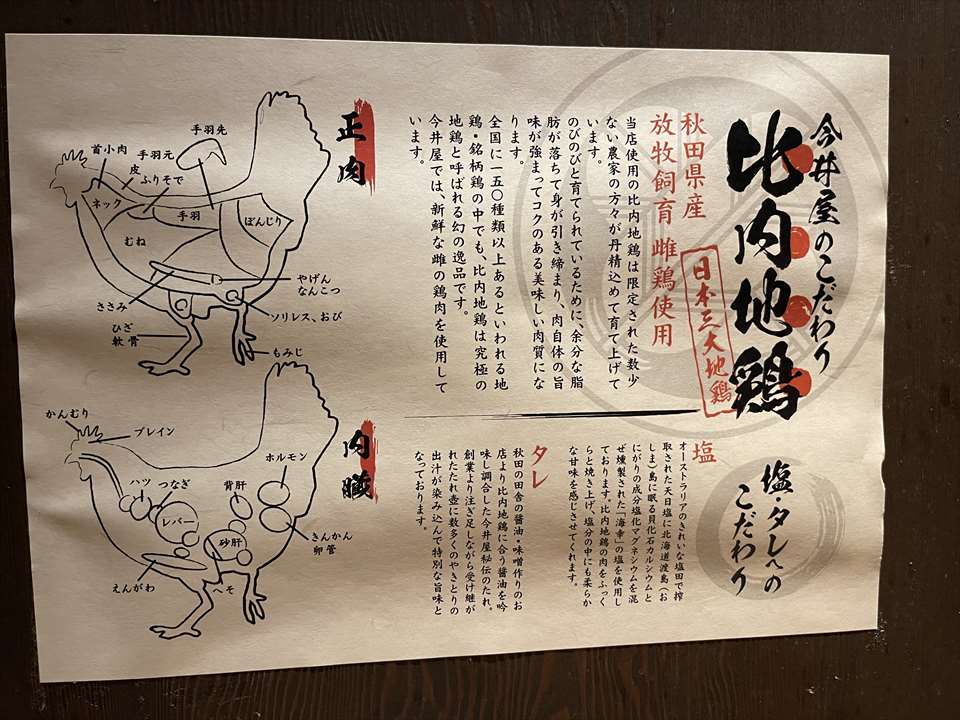 今井屋のこだわり
比内地鶏
日本三大地鶏
秋田県産
放牧飼育 雌鶏使用
当店使用の比内地鶏は限定された数少
ない農家の方々が丹精込めて育て上げて
います。
のびのびと育てられているために、余分な脂
肪が落ちて身が引き締まり、肉自体の旨
味が強まってコクのある美味しい肉質にな
ります。
全国に一五〇種類以上あるといわれる地
鶏・銘柄鶏の中でも、比内地鶏は究極の
地鶏と呼ばれる幻の逸品です。
今井屋では、新鮮な雌の鶏肉を使用して
います。
正肉
手羽先
首小肉
手羽元
皮
ふりそで
ネック
手羽
ぼんじり
むね
ささみ
やげん
なんこつ
ソリレス、おび
ひざ
軟骨
もみじ
塩・タレへの
こだわり
塩
オーストラリアのきれいな塩田で搾
取された天日塩に北海道渡島（お
しま）島に眠る貝化石カルシウムと
にがりの成分塩化マグネシウムを混
ぜ燻製された「海幸」の塩を使用し
ております。比内地鶏の肉をふっく
らと焼き上げ、塩分の中にも柔らか
な甘味を感じさせてくれます。
タレ
秋田の田舎の醤油・味噌作りのお
店より比内地鶏に合う醤油を吟
味し調合した今井屋秘伝のたれ。
創業より注ぎ足しながら受け継が
れたたれ壺に数多くのやきとりの
出汁が染み込んで特別な旨味と
なっております。
内臓
かんむり
ブレイン
ハツ
つなぎ
背肝
ホルモン
レバー
砂肝
きんかん
卵管
えんがわ
へそ